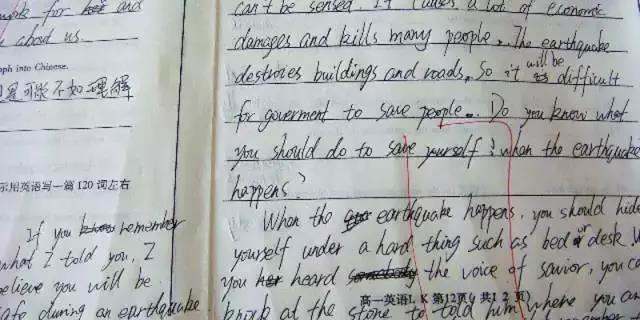 for her and
about us.
ph into Chinese.
不如理解
示用英语写一篇 120 词左右
If you know remember
what I told you, I
believe you will be
safe during an earthquake
can't be sensed. It causes a lot of economic
damages and kills many people. The earthquake
destroies buildings and roads. So it will be difficult
for goverment to save people. Do you know what
you should do to save yourself when the earthquake
happens?
When the earthquake happens, you should hide
yourself under a hard thing such as bed or desk.
you heard somebody the voice of savior, you ca
高一英语L K 第12页( 共1 2 页)
knock at the stone to told him where you are